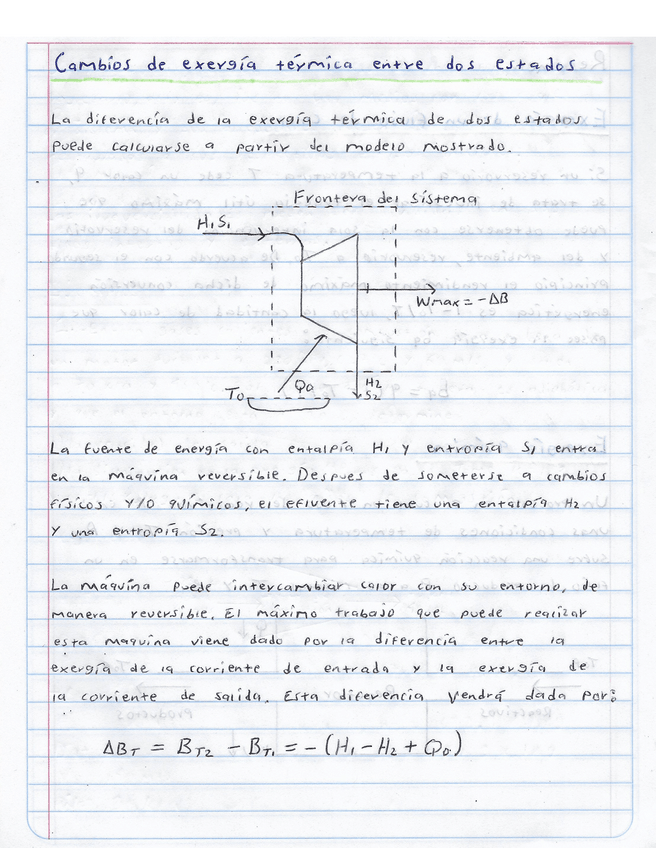 Cambios de exergía térmica entre dos estados
La diferencía de la exergía térmica de dos estados
puede calcularse a partir del modelo mostrado.
Frontera del sistema
H₁S₁
Wmax = -ΔB
T₀
Q₀
H₂
S₂
La fuente de energía con entalpía H₁ y entropía S₁ entra
en la máquina reversible. Despues de someterse a cambios
físicos Y/O químicos, el efluente tiene una entalpía H₂
Y una entropía S₂.
La máquina puede intercambiar calor con su entorno, de
manera reversible. El máximo trabajo que puede realizar
esta maquina viene dado por la diferencia entre la
exergía de la corriente de entrada y la exergía de
la corriente de salida. Esta diferencia vendrá dada por:
ΔB_T = B_T2 - B_T1 = -(H₁ - H₂ + Q₀)